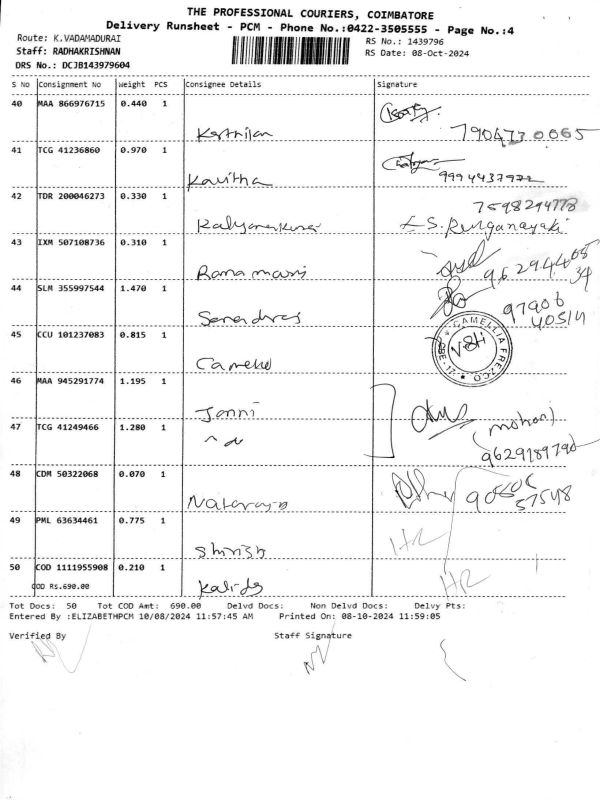 THE PROFESSIONAL COURIERS, COIMBATORE
Delivery Runsheet - PCM - Phone No.:0422-3505555 - Page No.:4
Route: K.VADAMADURAI
Staff: RADHAKRISHNAN
DRS No.: DCJB143979604
RS No.: 1439796
RS Date: 08-Oct-2024
S No Consignment No Weight PCS Consignee Details Signature
40 MAA 866976715 0.440 1
7904730065
41 TCG 41236860 0.970 1
Kavitha
9994437972
42 TDR 200046273 0.330 1
7598294778
S. Runganayaki
43 IXM 507108736 0.310 1
9629440834
44 SLM 355997544 1.470 1
97906
40514
45 CCU 101237083 0.815 1
CAMELLIA FREZCO
CBE-17
46 MAA 945291774 1.195 1
Janni
47 TCG 41249466 1.280 1
(mohan)
9629189790
48 CDM 50322068 0.070 1
49 PML 63634461 0.775 1
Shirish
HR
50 COD 1111955908 0.210 1
COD RS.690.00
HR
Tot Docs: 50 Tot COD Amt: 690.00 Delvd Docs: Non Delvd Docs: Delvy Pts:
Entered By :ELIZABETHPCM 10/08/2024 11:57:45 AM Printed On: 08-10-2024 11:59:05
Verified By Staff Signature